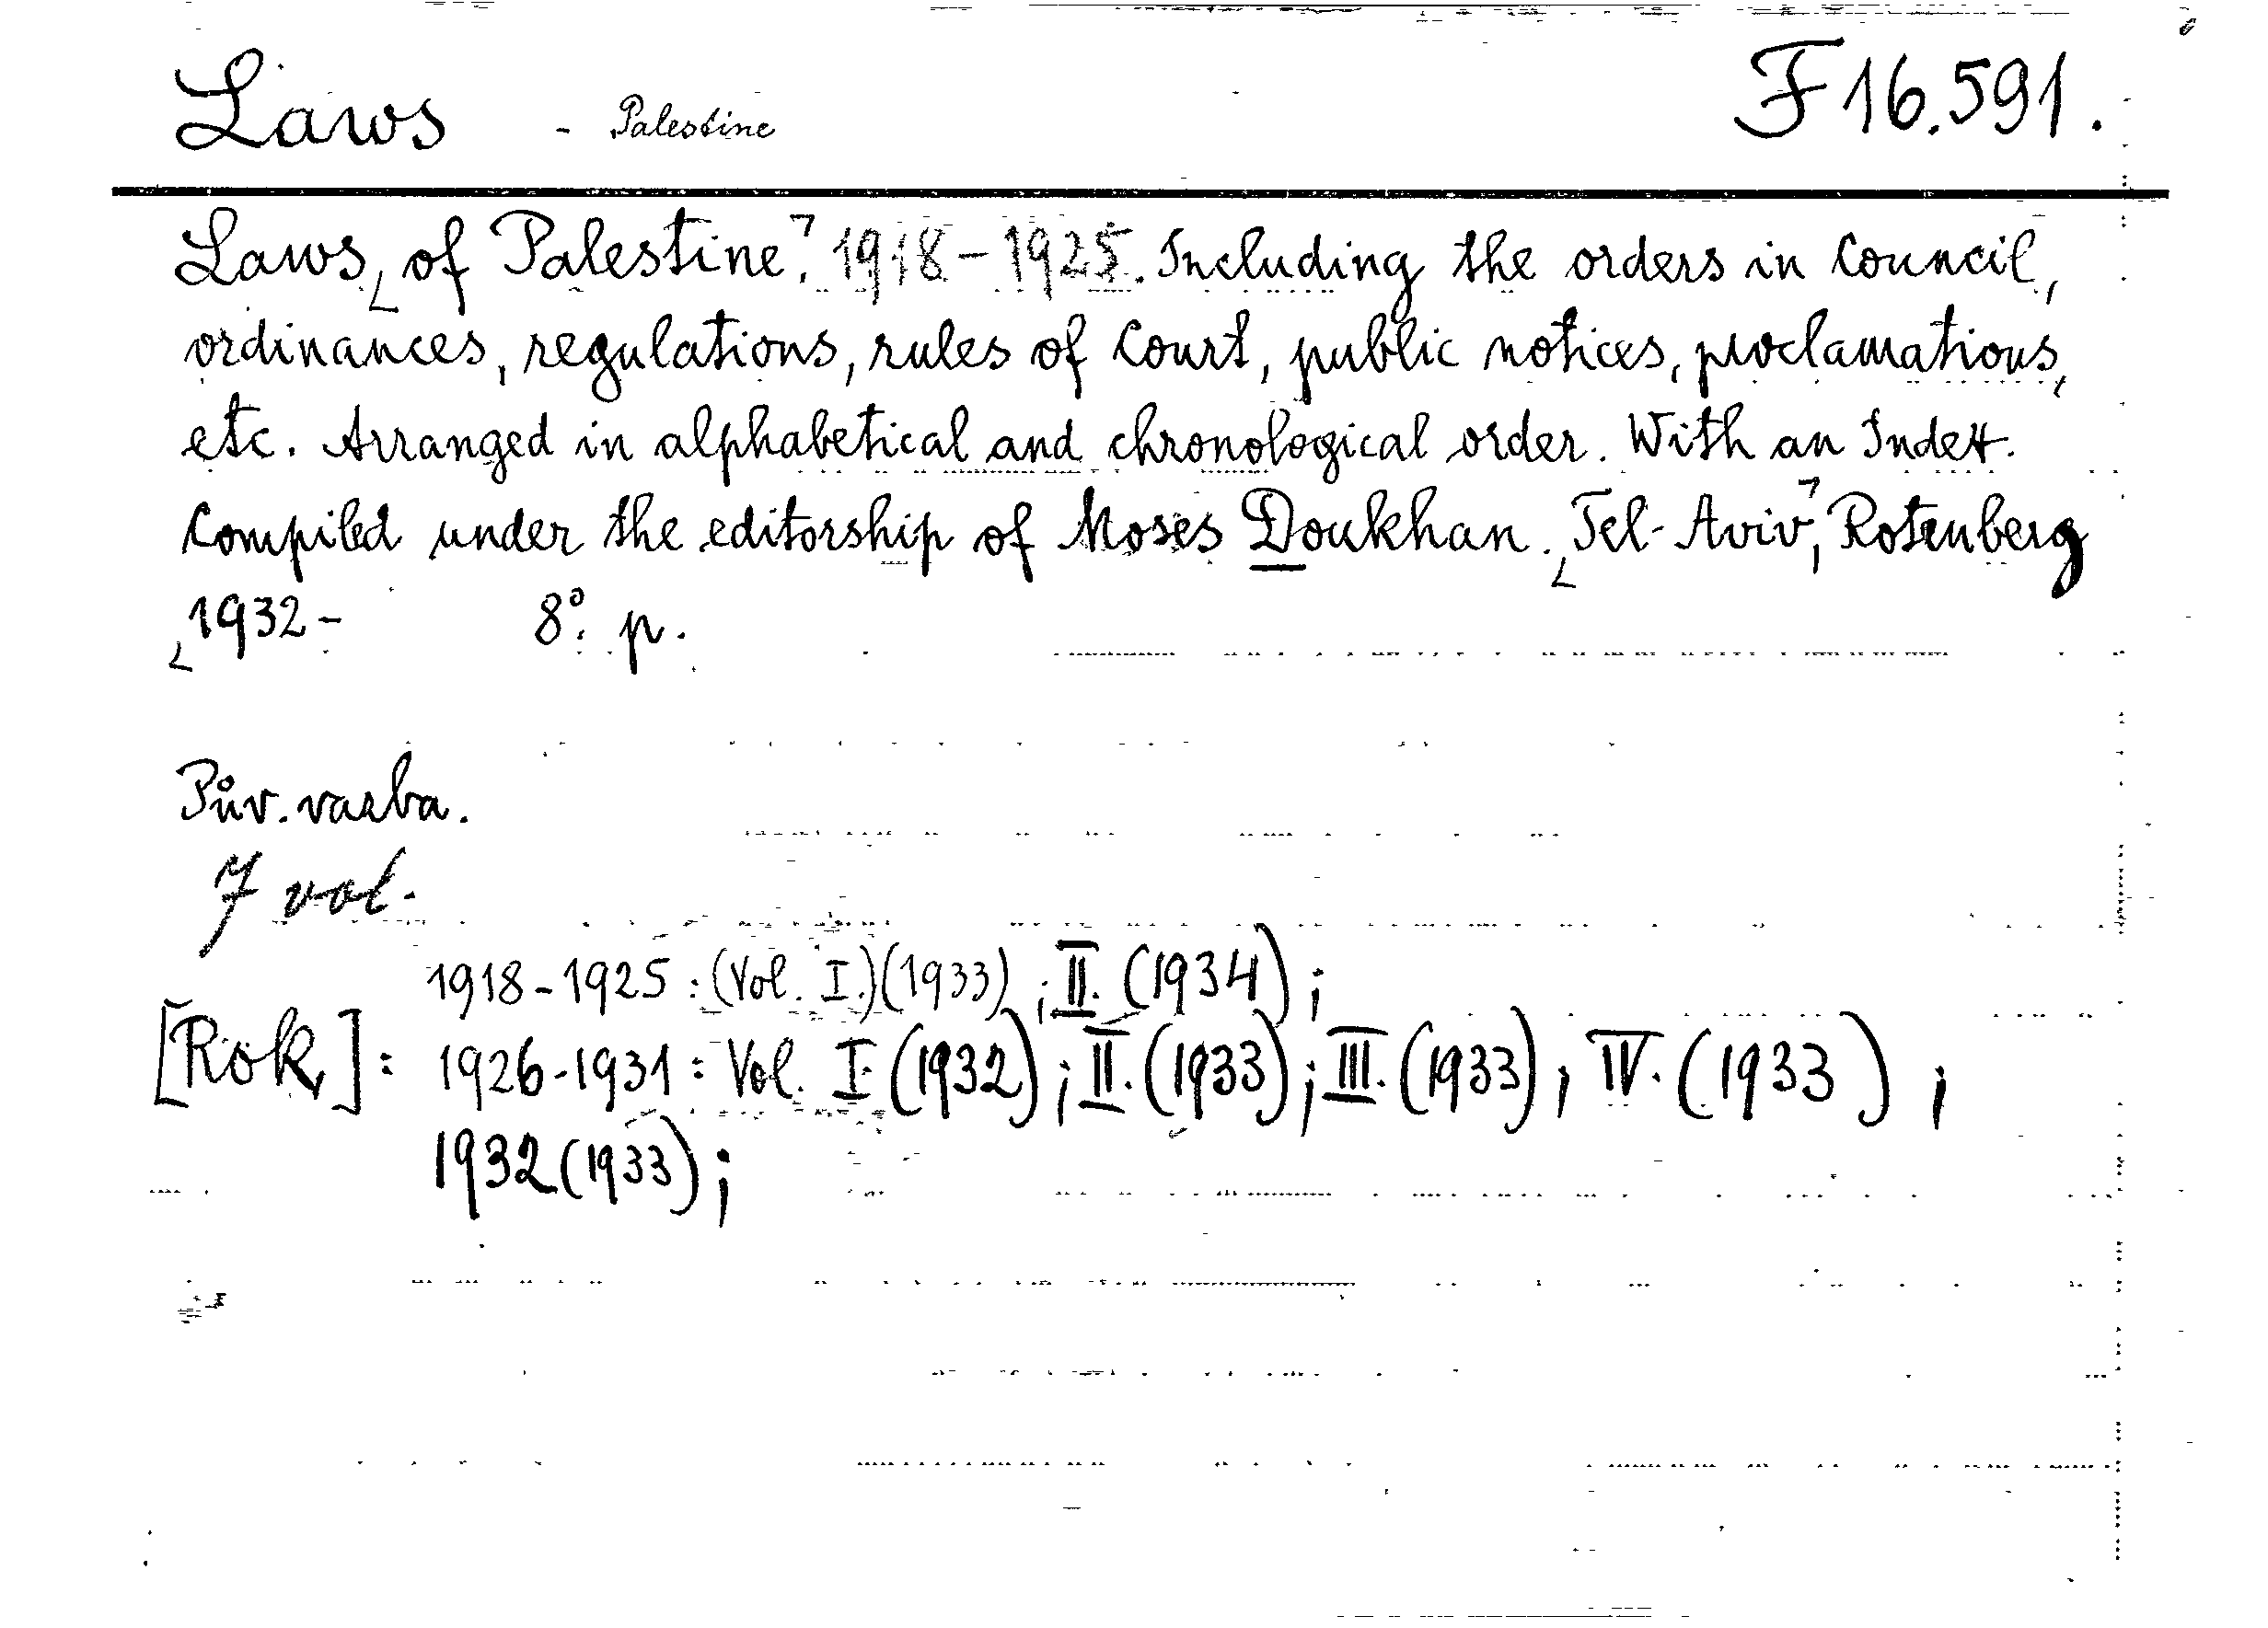 Laws - Palestine F 16.591.
Laws, of Palestine. 1918-1925. Including the orders in Council,
ordinances, regulations, rules of Court, public notices, proclamations,
etc. Arranged in alphabetical and chronological order. With an Index.
Compiled under the editorship of Moses Doukhan. Tel-Aviv, Rotenberg
1932- 8°. p.
Pův. vazba.
7 vol.
1918-1925: (Vol. I.) (1933); II. (1934);
[Rok]: 1926-1931: Vol. I. (1932); II. (1933); III. (1933); IV. (1933);
1932 (1933);